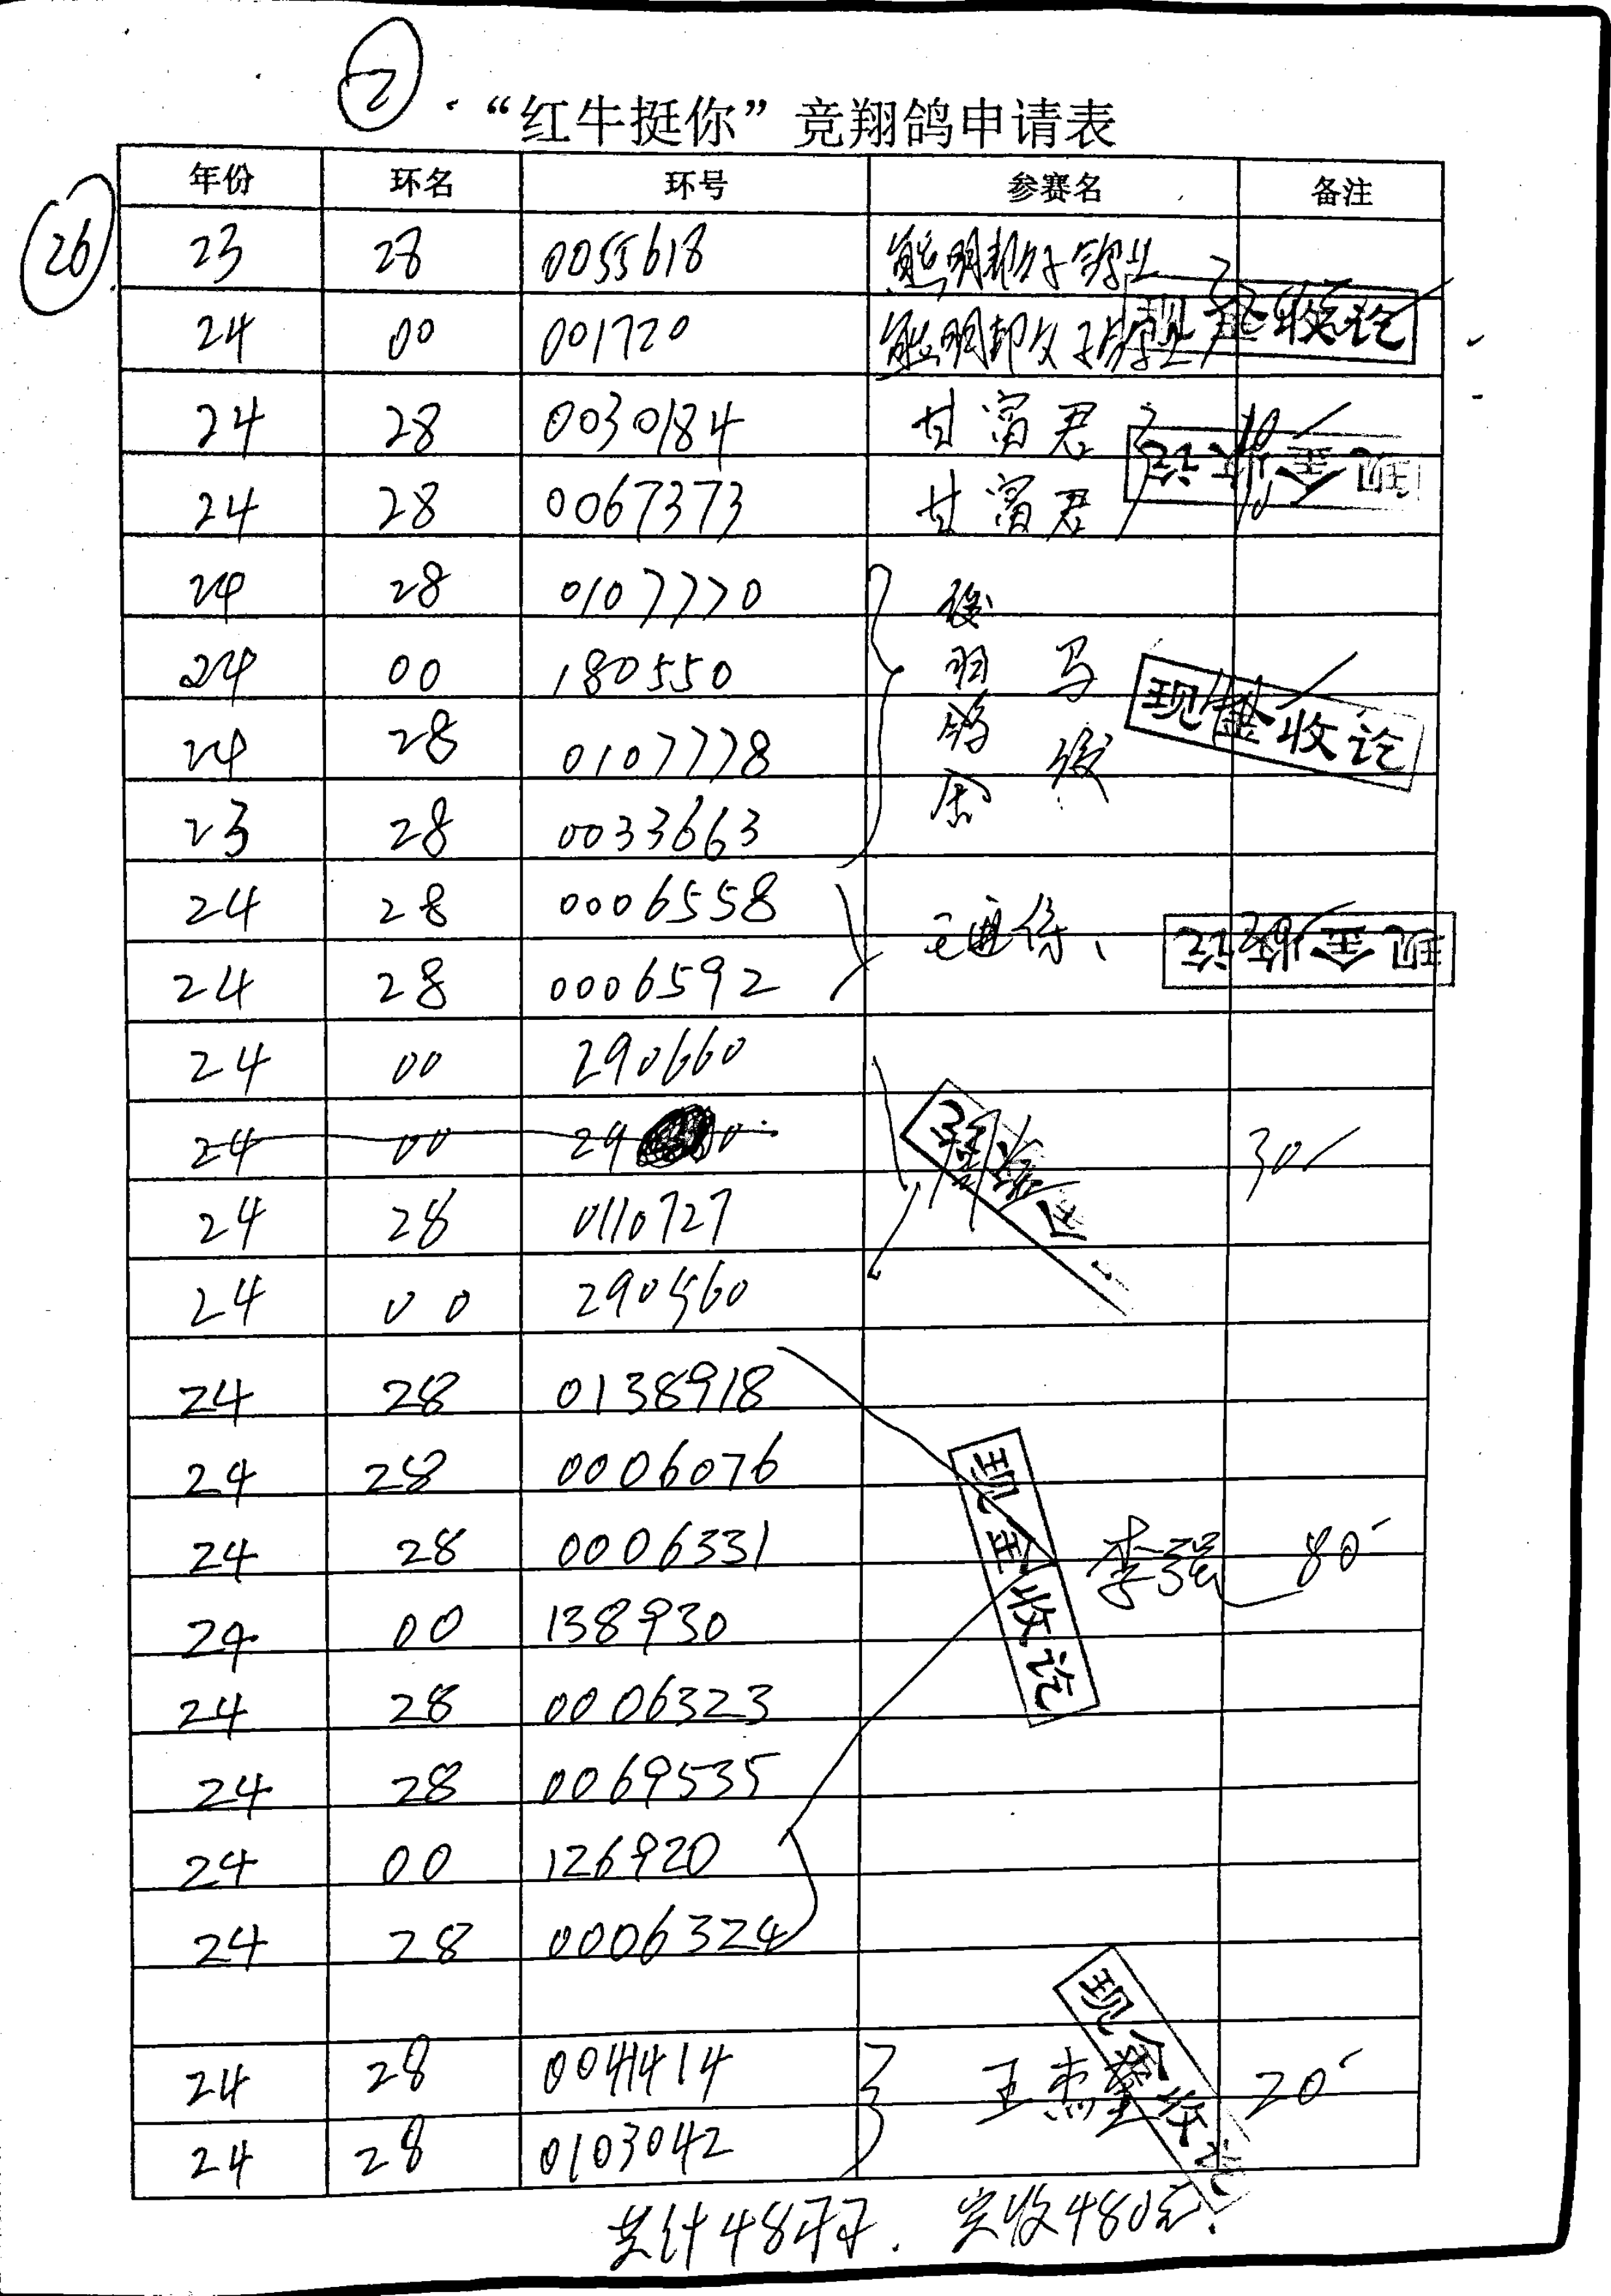 ②
“红牛挺你”竞翔鸽申请表
年份 环名 环号 参赛名 备注
26
23 28 0055618 熊明邦父子鸽业
24 00 001720 熊明邦父子鸽业
现金收讫
24 28 0030184 甘富君 10
24 28 0067373 甘富君 10
现金收讫
24 28 0107770
24 00 180550
24 28 0107778
23 28 0033663
俊羽鸽舍 马俊
现金收讫
24 28 0006558
24 28 0006592
20
现金收讫
24 00 290660
24 00 29 0
24 28 0110727
24 00 290560
30
24 28 0138918
24 28 0006076
24 28 0006331 李强 80
24 00 138930
24 28 0006323
24 28 0069535
24 00 126920
24 28 0006324
现金收讫
24 28 0041414 王杰 20
24 28 0103042
现金收讫
共计48羽. 实收480元.